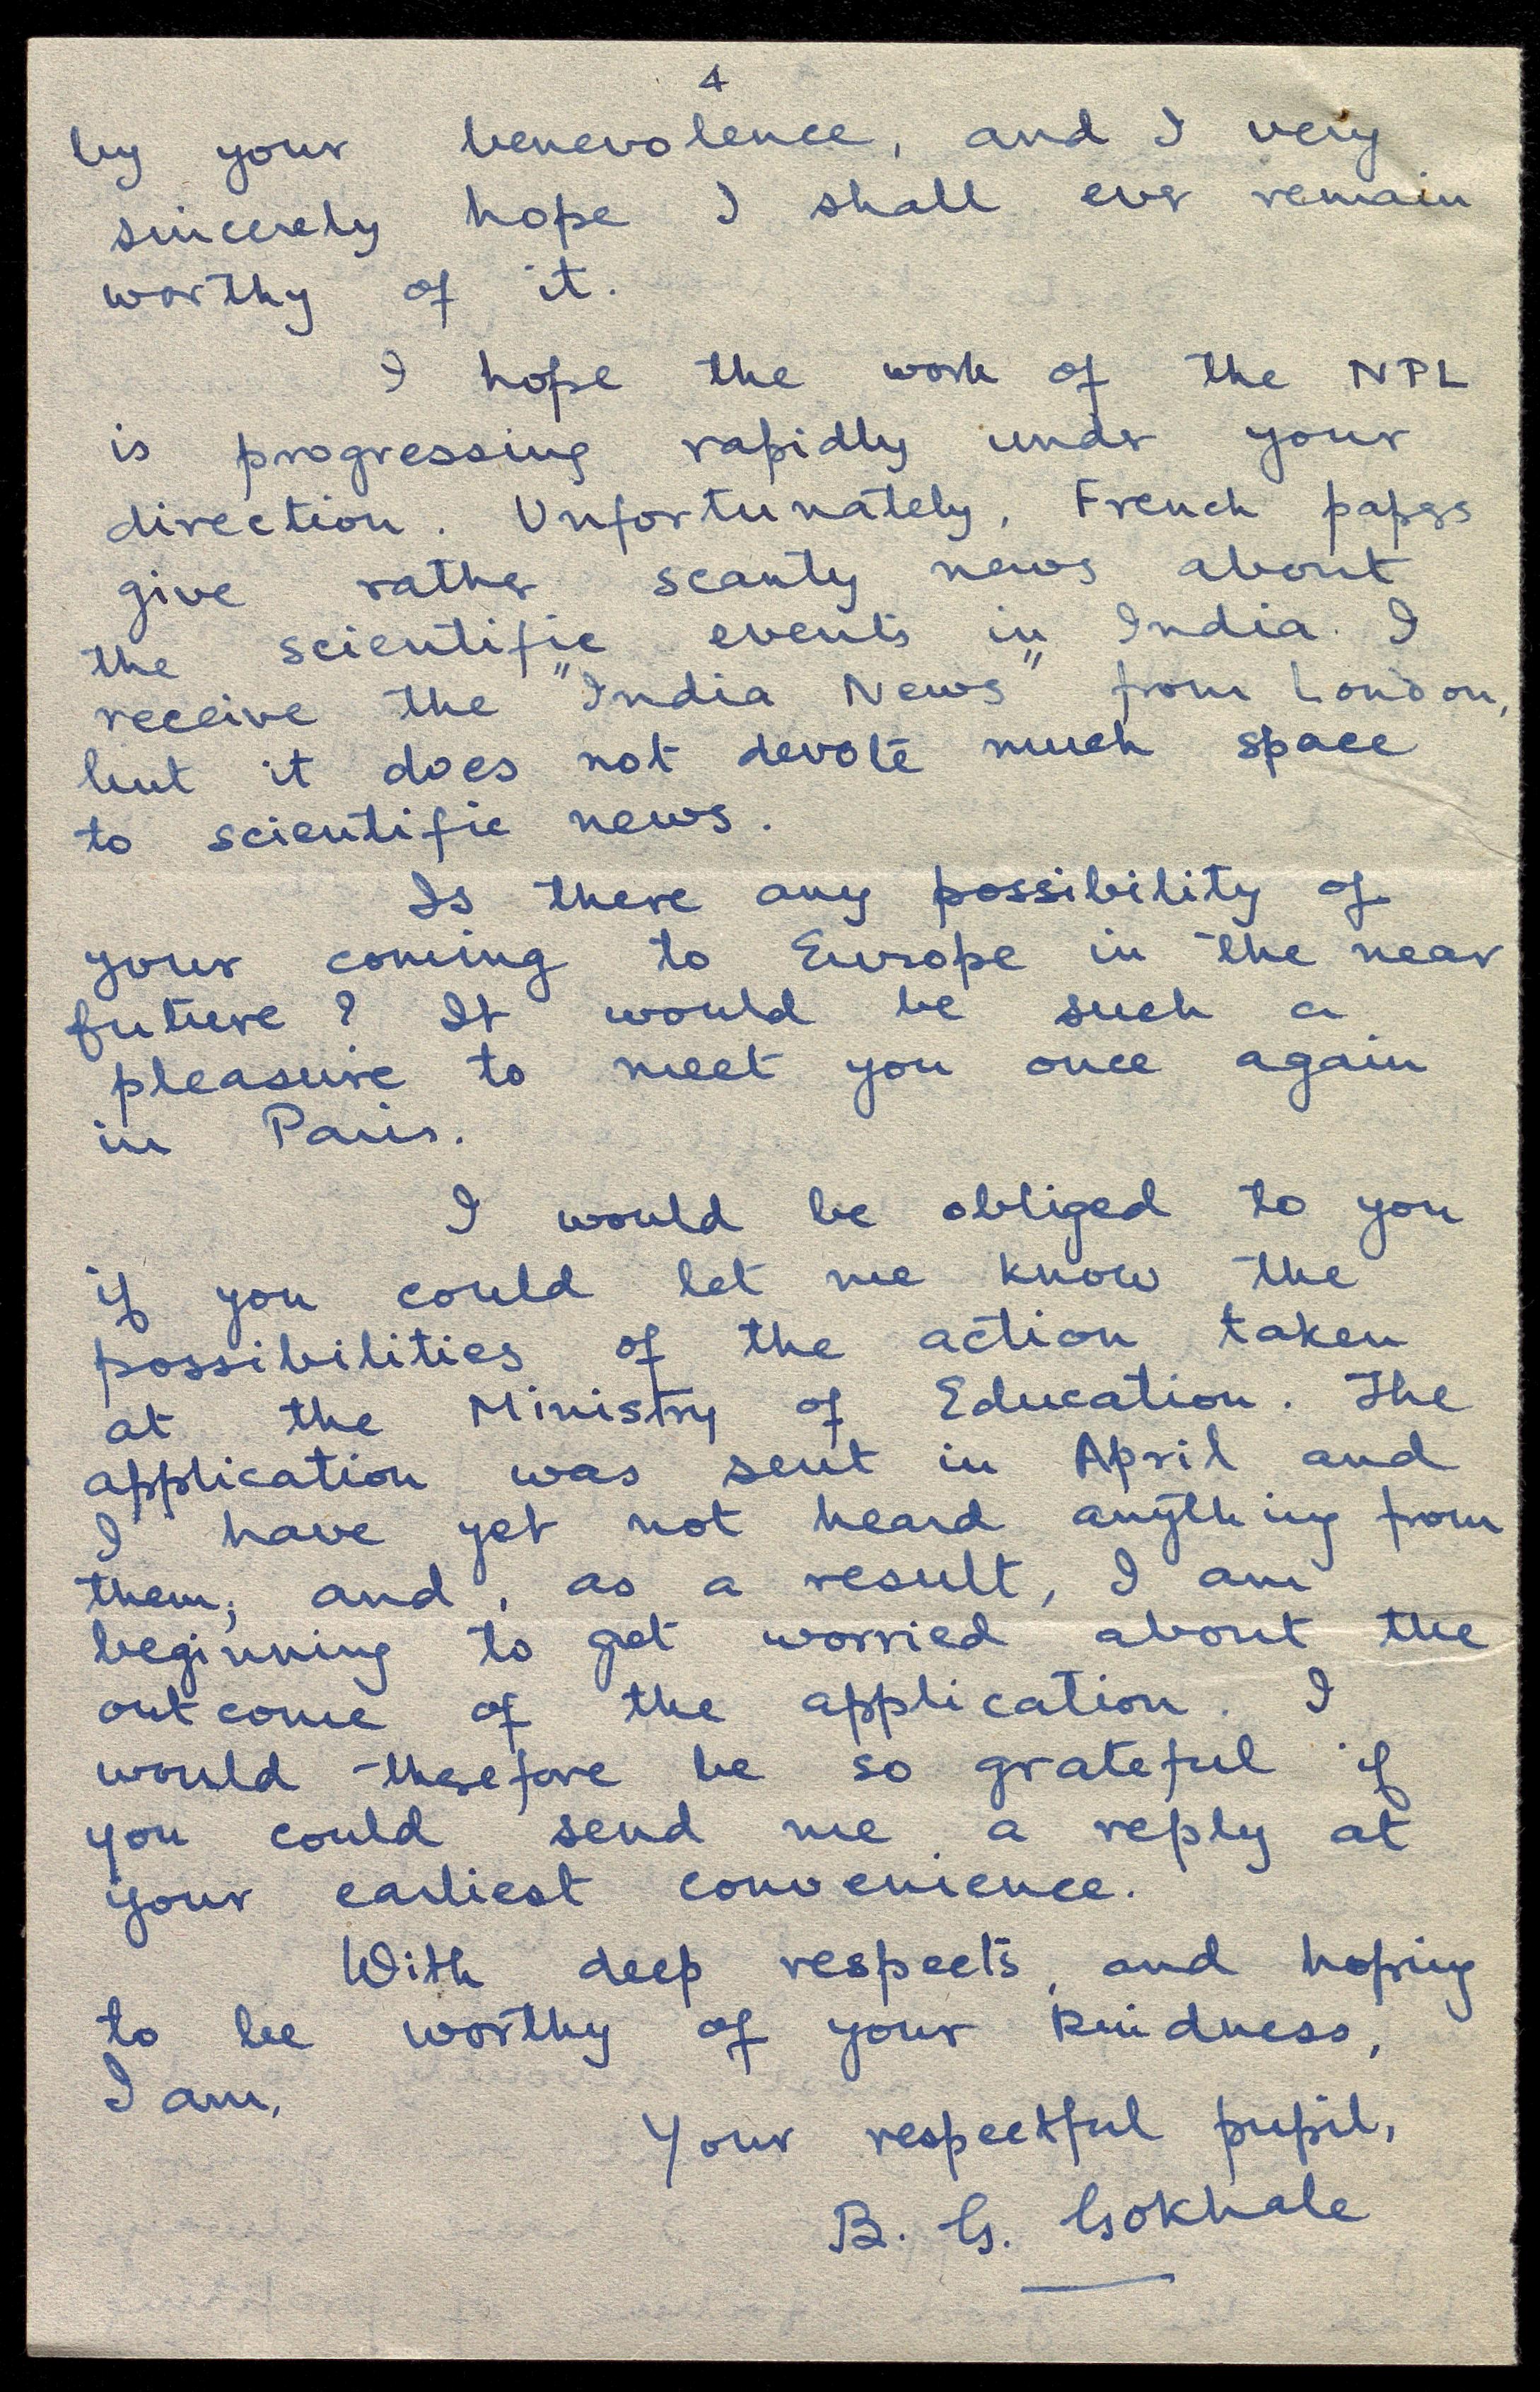 4
by your benevolence, and I very
sincerely hope I shall ever remain
worthy of it.
I hope the work of the NPL
is progressing rapidly under your
direction. Unfortunately, French papers
give rather scanty news about
the scientific events in India. I
receive the "India News" from London,
but it does not devote much space
to scientific news.
Is there any possibility of
your coming to Europe in the near
future? It would be such a
pleasure to meet you once again
in Paris.
I would be obliged to you
if you could let me know the
possibilities of the action taken
at the Ministry of Education. The
application was sent in April and
I have yet not heard anything from
them; and, as a result, I am
beginning to get worried about the
outcome of the application. I
would therefore be so grateful if
you could send me a reply at
your earliest convenience.
With deep respects, and hoping
to be worthy of your kindness,
I am,
Your respectful pupil,
B. G. Gokhale